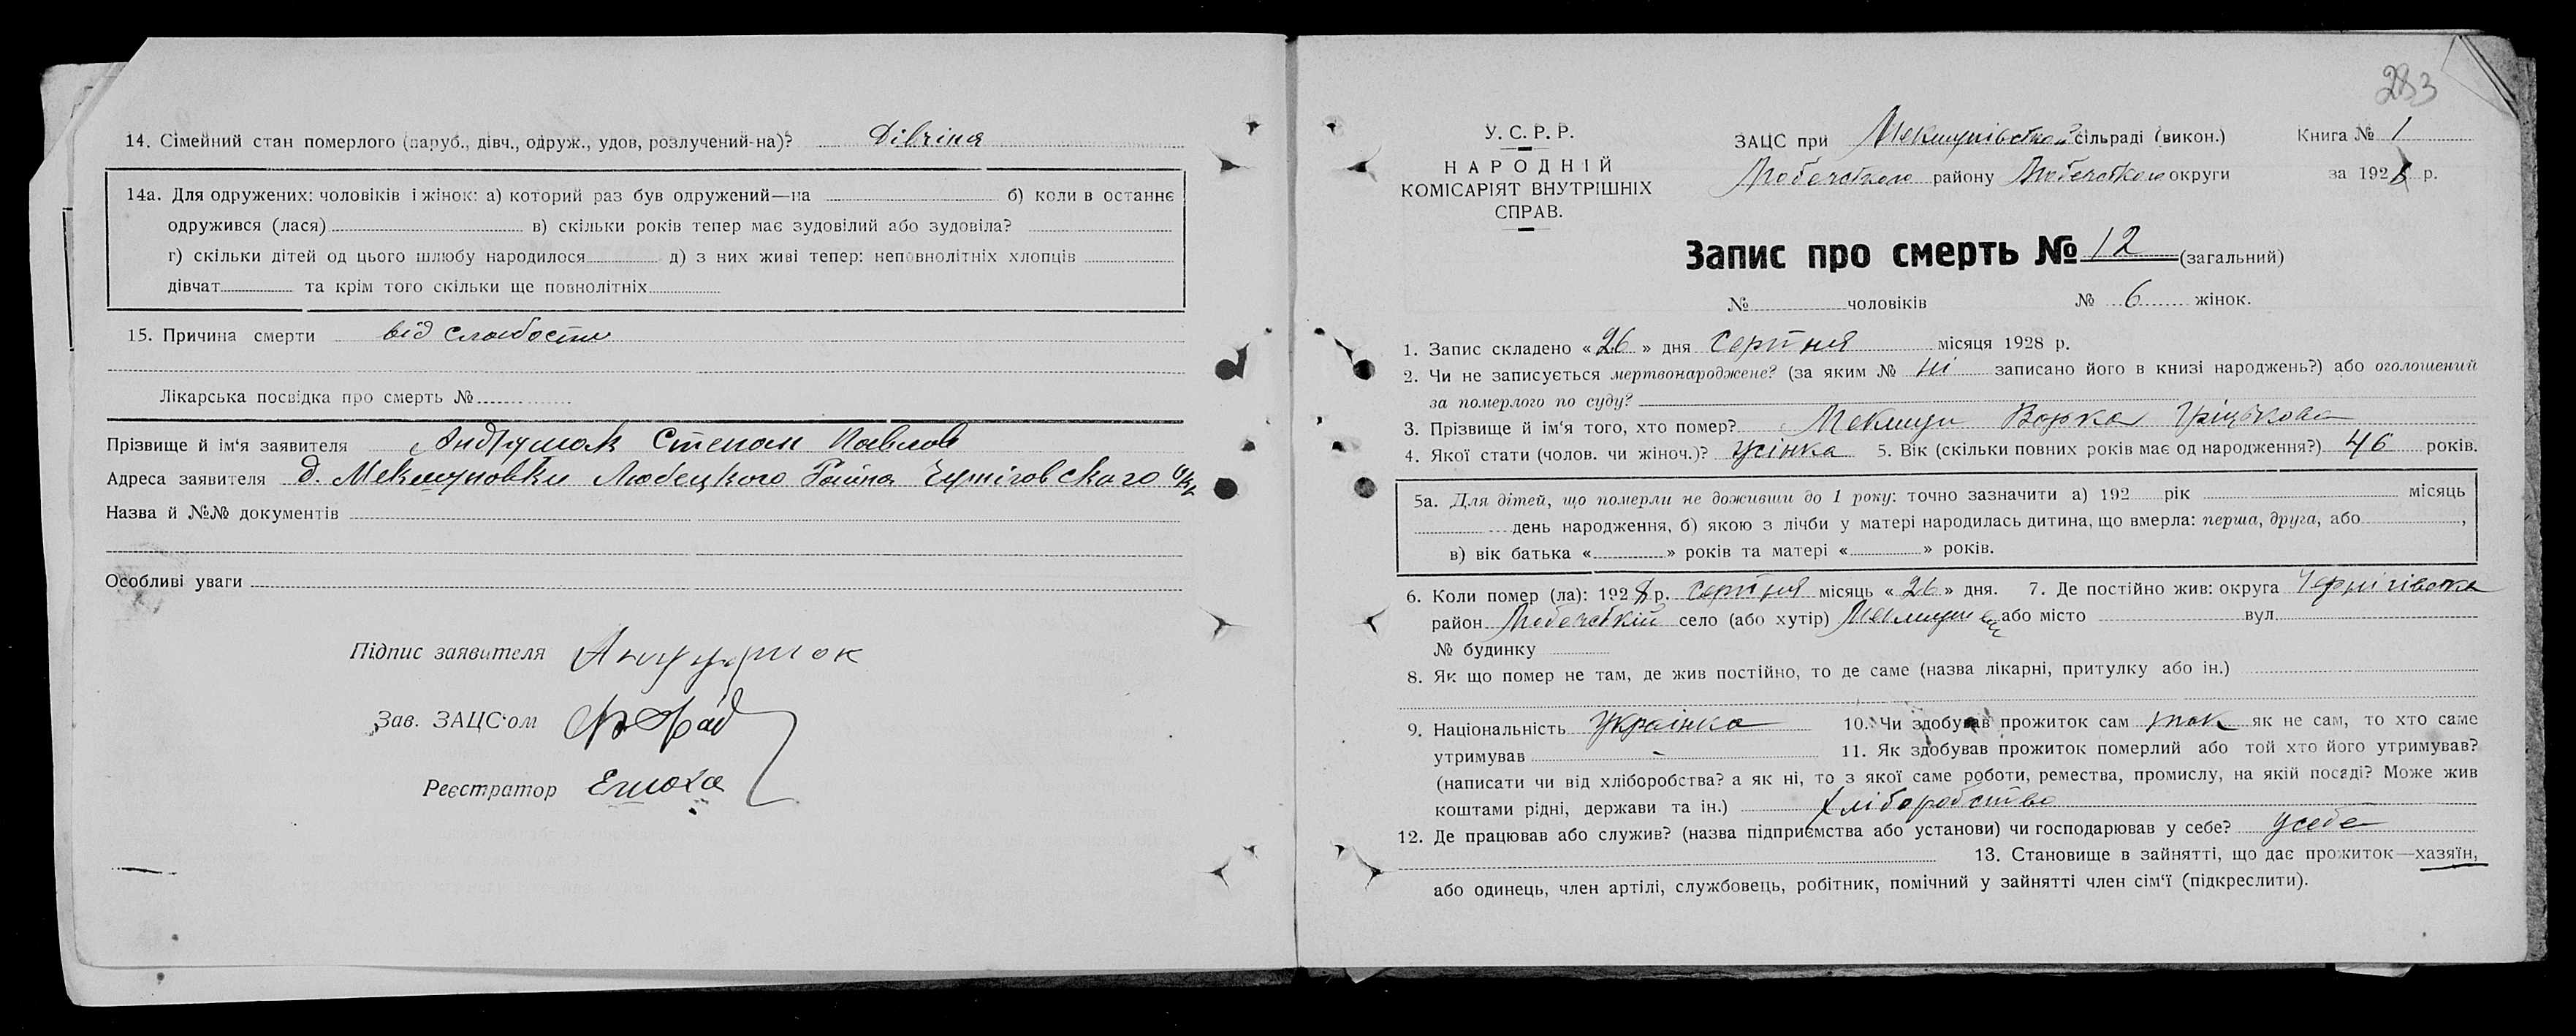 14. Сімейний стан померлого (паруб., дівч., одруж., удов, розлучений-на)? Дівчина
14а. Для одружених: чоловіків і жінок: а) которий раз був одружений—на б) коли в останнє
одружився (лася) в) скільки років тепер має зудовілий або зудовіла?
г) скільки дітей од цього шлюбу народилося д) з них живі тепер: неповнолітніх хлопців
дівчат та крім того скільки ще повнолітніх
15. Причина смерти від слабости
Лікарська посвідка про смерть №
Прізвище й ім‘я заявителя Андрушок Степан Павлов
Адреса заявителя д. Мекшуновки Любецкого Района
Назва й №№ документів
Особливі уваги
Підпис заявителя
Зав. ЗАЦС‘ом
Реєстратор
283
У. С. Р. Р.
НАРОДНІЙ
КОМІСАРІЯТ ВНУТРІШНІХ
СПРАВ.
ЗАЦС при Мекшунівской сільраді (викон.) Книга № 1
Любечського району Любечського округи за 1928 р.
Запис про смерть № 12 (загальний)
№ чоловіків № 6 жінок.
1. Запис складено «26» дня Серпня місяця 1928 р.
2. Чи не записується мертвонароджене? (за яким № ні записано його в книзі народжень?) або оголошений
за померлого по суду?
3. Прізвище й ім‘я того, хто помер? Мекшун Варка Гріцькова
4. Якої стати (чолов. чи жіноч.)? жінка 5. Вік (скільки повних років має од народження?) 46 років.
5а. Для дітей, що померли не доживши до 1 року: точно зазначити а) 192 рік місяць
день народження, б) якою з лічби у матері народилась дитина, що вмерла: перша, друга, або ,
в) вік батька « » років та матері « » років.
6. Коли помер (ла): 1928 р. серпня місяць «26» дня. 7. Де постійно жив: округа Чернігівска
район Любечській село (або хутір) або місто вул.
№ будинку
8. Як що помер не там, де жив постійно, то де саме (назва лікарні, притулку або ін.)
9. Національність Українка 10. Чи здобував прожиток сам так як не сам, то хто саме
утримував - 11. Як здобував прожиток померлий або той хто його утримував?
(написати чи від хліборобства? а як ні, то з якої саме роботи, ремества, промислу, на якій посаді? Може жив
коштами рідні, держави та ін.) хліборобство
12. Де працював або служив? (назва підприємства або установи) чи господарював у себе? у себе
13. Становище в зайнятті, що дає прожиток—хазяїн,
або одинець, член артілі, службовець, робітник, помічний у зайнятті член сім‘ї (підкреслити).